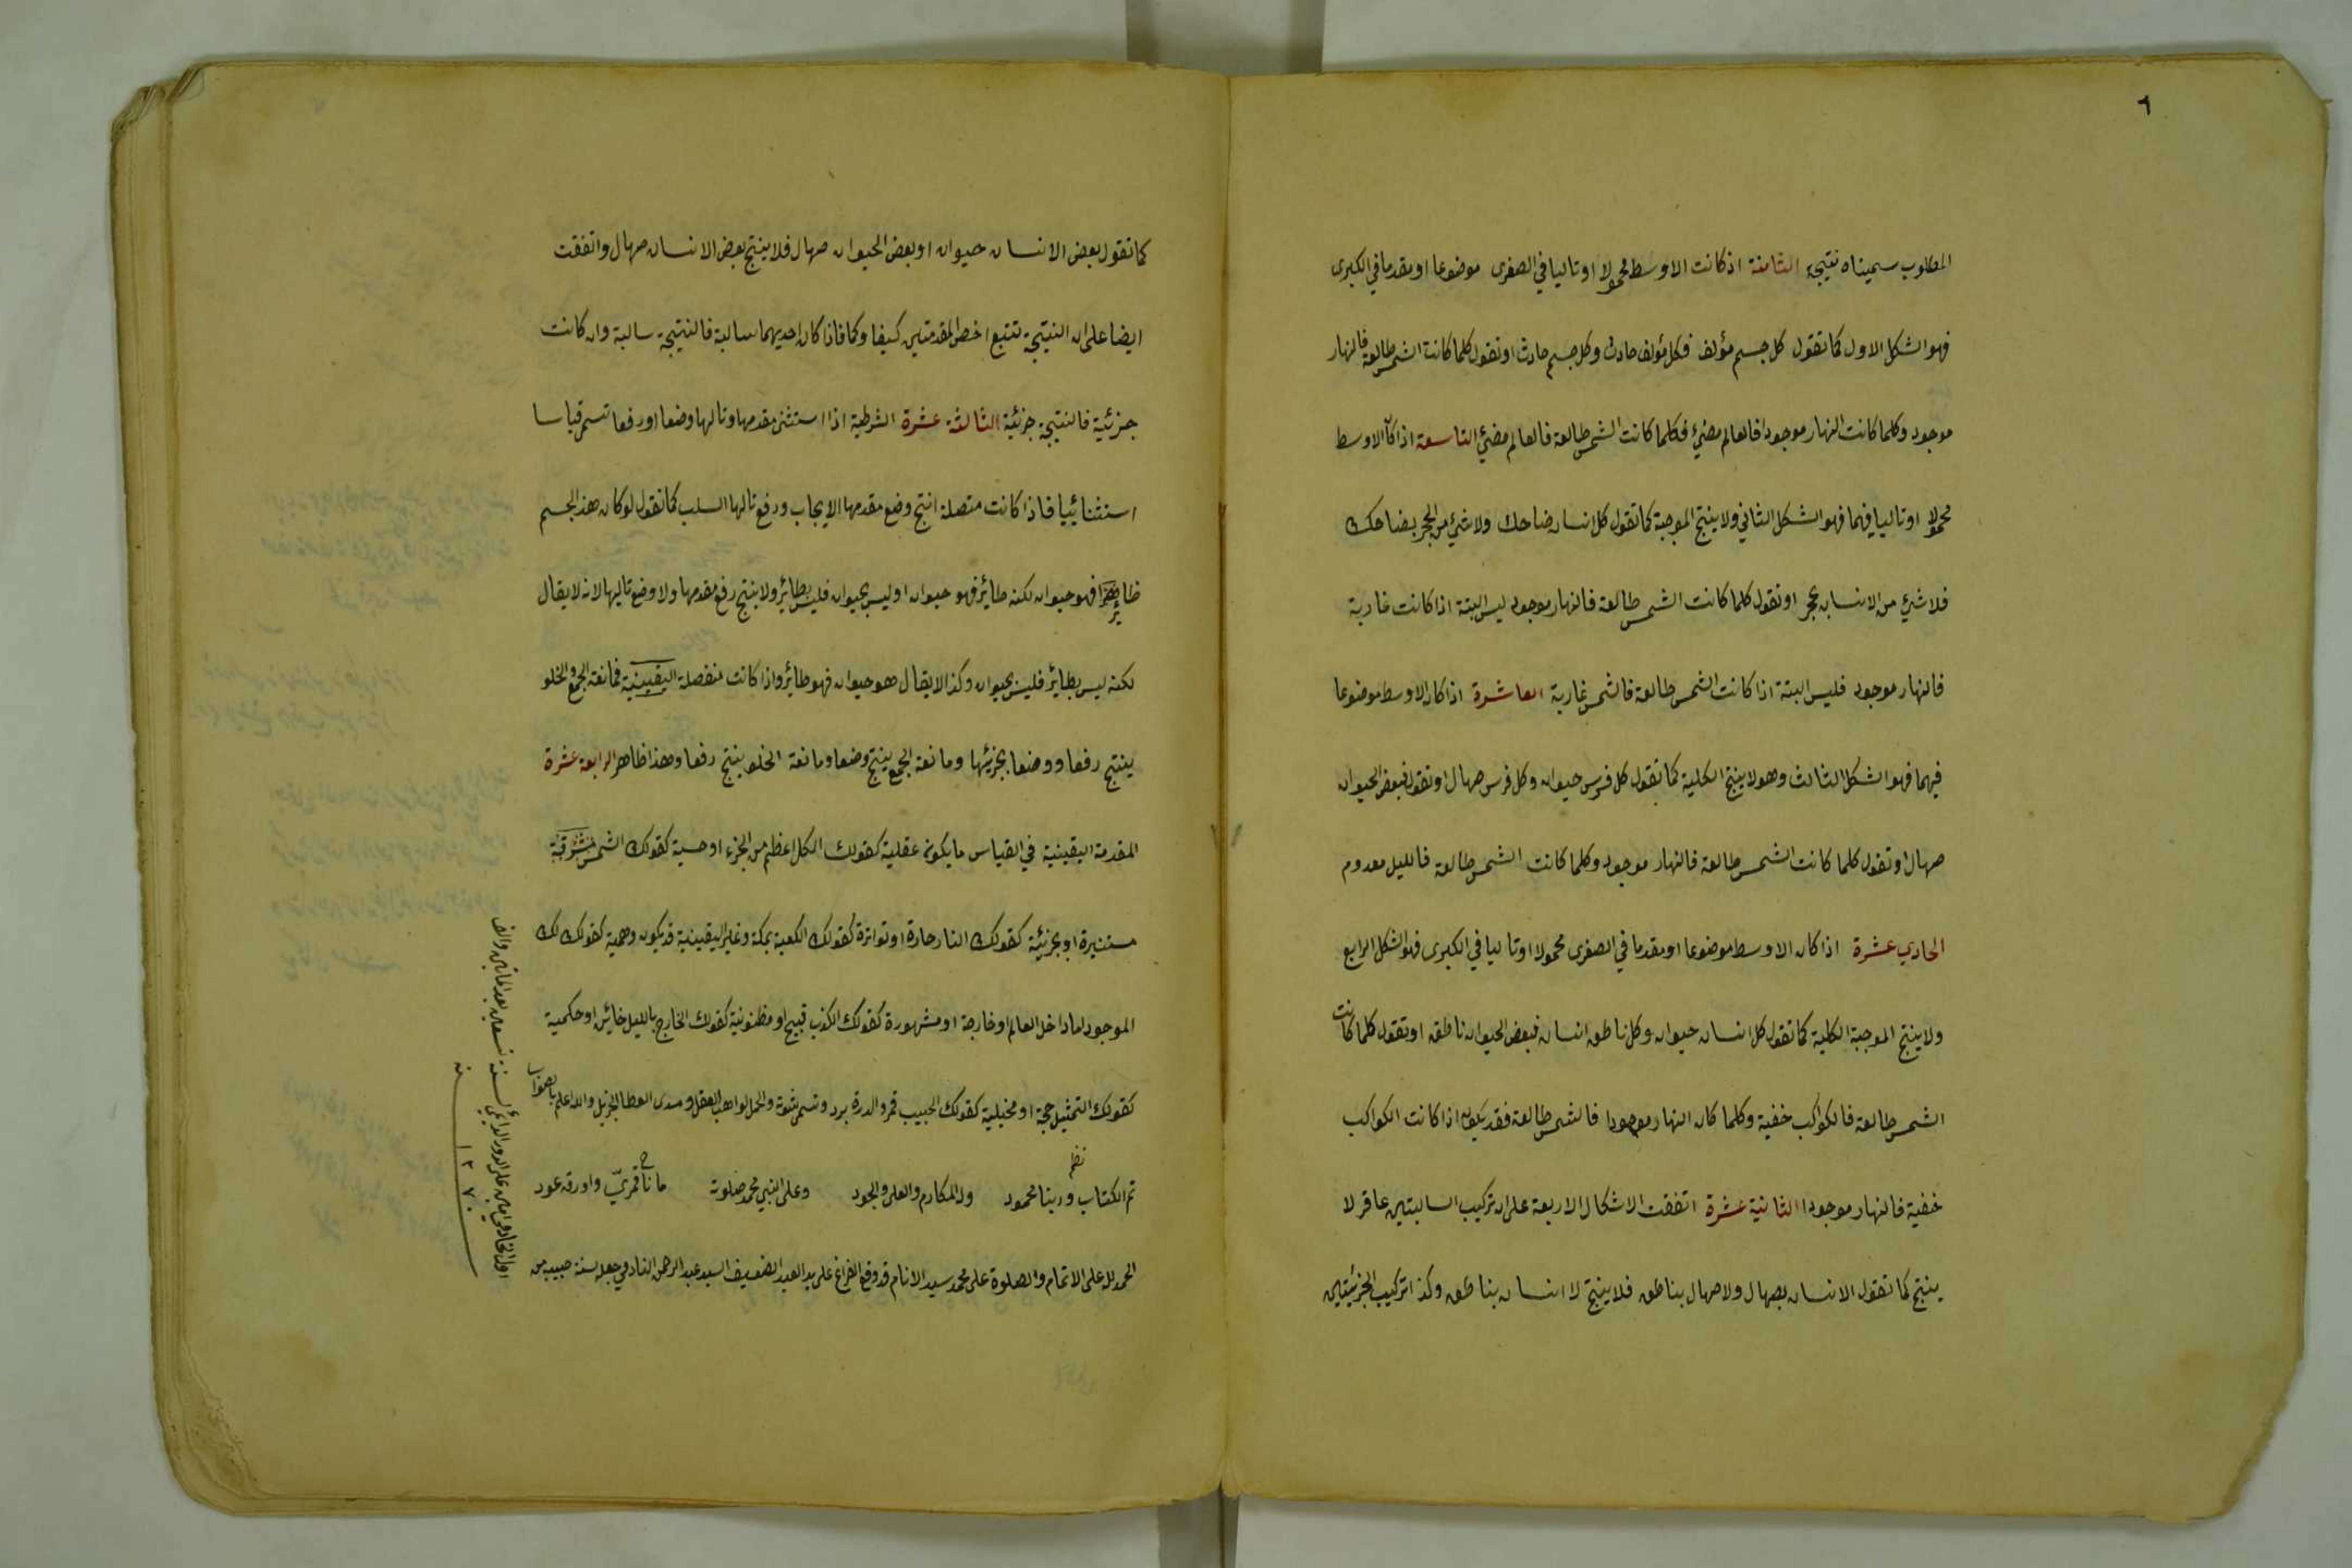 ٦
المطلوب سميناه نتيجة الثامنة اذ كانت الاوسط محمولا او تاليا في الصغرى موضوعا او مقدما في الكبرى
فهو الشكل الاول كما تقول كل جسم مؤلف فكل مؤلف حادث وكل جسم حادث او تقول كلما كانت الشمس طالعة فالنهار
موجود وكلما كانت النهار موجودا فالعالم مضيئ فكلما كانت الشمس طالعة فالعالم مضيئ التاسعة اذا كان الاوسط
محمولا او تاليا فيهما فهو الشكل الثاني ولا ينتج الموجبة كما تقول كل انسان ضاحك ولا شيئ من الحجر بضاحك
فلا شيئ من الانسان بحجر او تقول كلما كانت الشمس طالعة فالنهار موجود ليس البتة اذا كانت غاربة
فالنهار موجود فليس البتة اذا كانت الشمس طالعة فالشمس غاربة العاشرة اذا كان الاوسط موضوعا
فيهما فهو الشكل الثالث وهو لا ينتج الكلية كما تقول كل فرس حيوان وكل فرس صهال او تقول فبعض الحيوان
صهال او تقول كلما كانت الشمس طالعة فالنهار موجود وكلما كانت الشمس طالعة فالليل معدوم
الحادي عشرة اذا كان الاوسط موضوعا او مقدما في الصغرى محمولا او تاليا في الكبرى فهو الشكل الرابع
ولا ينتج الموجبة الكلية كما تقول كل انسان حيوان وكل ناطق انسان فبعض الحيوان ناطق او تقول كلما كانت
الشمس طالعة فالكواكب خفية وكلما كان النهار موجودا فالشمس طالعة فقد يكون اذا كانت الكواكب
خفية فالنهار موجودا الثانية عشرة اتفقت الاشكال الاربعة على ان تركيب السالبتين عاقر لا
ينتج كما تقول الانسان بصهال ولا صهال بناطق فلا ينتج لا انسان بناطق وكذا تركيب الجزئيتين
كما تقول بعض الانسان حيوان او بعض الحيوان صهال فلا ينتج بعض الانسان صهال واتفقت
ايضا على ان النتيجة تتبع اخص المقدمتين كيفا وكما فاذا كان احديهما سالبة فالنتيجة سالبة وان كانت
جزئية فالنتيجة جزئية الثالثة عشرة الشرطية اذا استثنى مقدمها وتاليها وضعا او رفعا تسمى قياسا
استثنائيا فاذا كانت متصلة انتج وضع مقدمها الايجاب ورفع تاليها السلب كما تقول لو كان هذا الجسم
طائرا فهو حيوان لكنه طائر فهو حيوان او ليس بحيوان فليس بطائر ولا ينتج رفع مقدمها ولا وضع تاليها لانه لا يقال
لكنه ليس بطاير فليس بحيوان وكذا لا يقال هو حيوان فهو طائر واذا كانت منفصلة اليقينية فمانعة الجمع والخلو
ينتج رفعا ووضعا بجزئيها ومانعة الجمع ينتج وضعا ومانعة الخلو ينتج رفعا وهذا ظاهر الرابعة عشرة
المقدمة اليقينية في القياس ما يكون عقلية كقولك الكل اعظم من الجزء او حسية كقولك الشمس مشرقة
مستنيرة او تجربية كقولك النار حارة او تواترة كقولك الكعبة بمكة وغير اليقينية قد يكون وهمية كقولك لك
الموجود اما داخل العالم او خارجة او مشهورة كقولك الكذب قبيح او مظنونية كقولك الخارج بالليل خائن او حكمية
كقولك التمثيل حجة او مخيلية كقولك الحبيب قمر والدرة برد وتسمى والحمل لواهب العقل ومسدى العطا الجزيل والله اعلم بالصواب
نظم
تم الكتاب وربنا محمود وله المكارم والعلى والجود وعلى النبي محمد صلوته ما ناح قمريّ واورق عود
الحمد لله على الاتمام والصلوة على محمد سيد الانام قد وقع الفراغ على يد العبد الضعيف السيد عبد الرحمن
سنة تسعين بعد المأتين والف